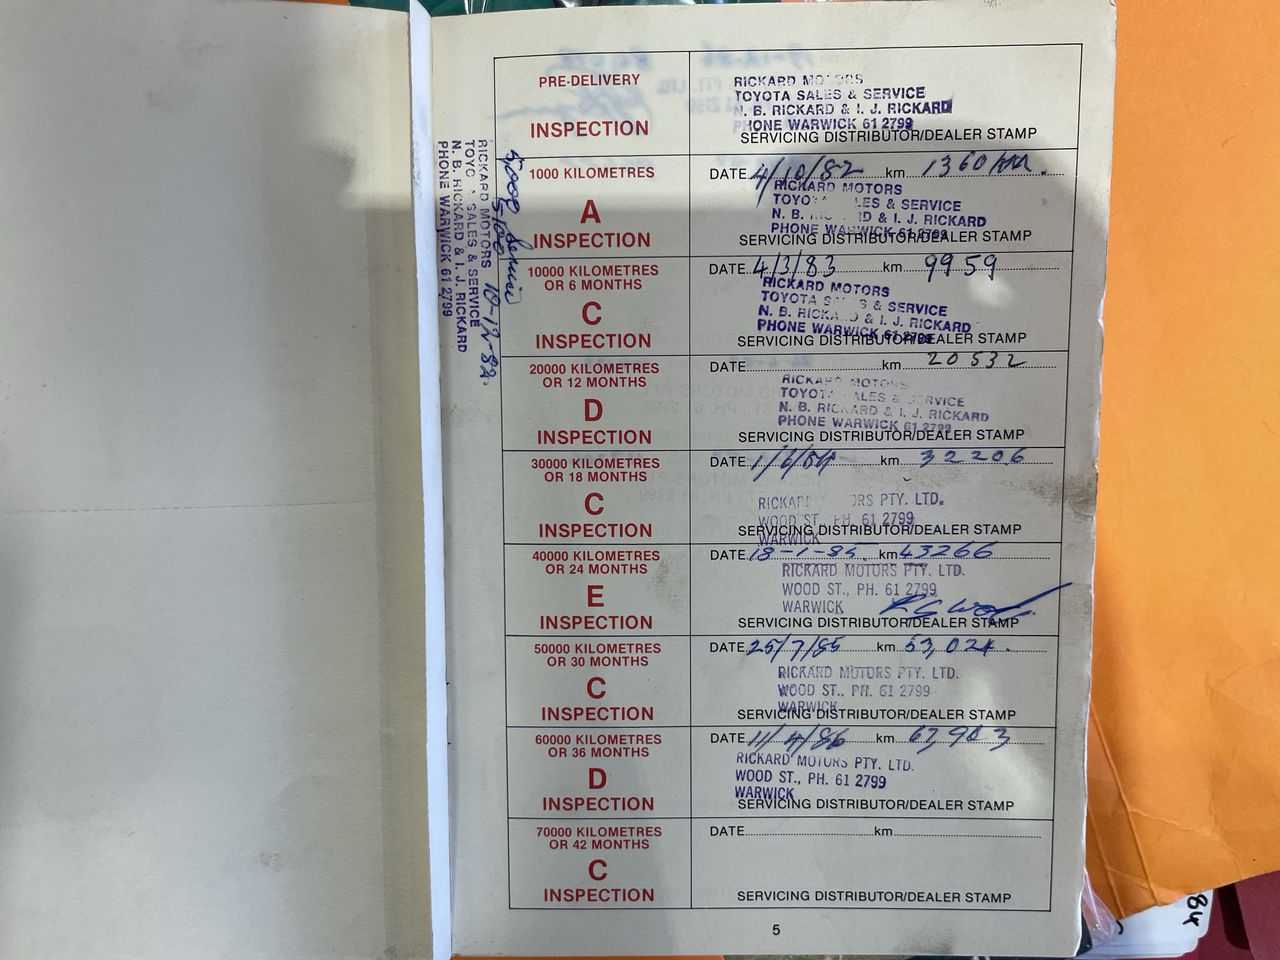 PRE-DELIVERY
INSPECTION
RICKARD MOTORS
TOYOTA SALES & SERVICE
N. B. RICKARD & I. J. RICKARD
PHONE WARWICK 61 2799
SERVICING DISTRIBUTOR/DEALER STAMP
5,000 Service
5100
10-12-82
RICKARD MOTORS
TOYOTA SALES & SERVICE
N. B. RICKARD & I. J. RICKARD
PHONE WARWICK 61 2799
1000 KILOMETRES
A
INSPECTION
DATE 4/10/82 km 1360 km.
RICKARD MOTORS
TOYOTA SALES & SERVICE
N. B. RICKARD & I. J. RICKARD
PHONE WARWICK 61 2799
SERVICING DISTRIBUTOR/DEALER STAMP
10000 KILOMETRES
OR 6 MONTHS
C
INSPECTION
DATE 4/3/83 km 9959
RICKARD MOTORS
TOYOTA SALES & SERVICE
N. B. RICKARD & I. J. RICKARD
PHONE WARWICK 61 2799
SERVICING DISTRIBUTOR/DEALER STAMP
20000 KILOMETRES
OR 12 MONTHS
D
INSPECTION
DATE km 20532
RICKARD MOTORS
TOYOTA SALES & SERVICE
N. B. RICKARD & I. J. RICKARD
PHONE WARWICK 61 2799
SERVICING DISTRIBUTOR/DEALER STAMP
30000 KILOMETRES
OR 18 MONTHS
C
INSPECTION
DATE 1/6/84 km 32206
RICKARD MOTORS PTY. LTD.
WOOD ST., PH. 61 2799
WARWICK
SERVICING DISTRIBUTOR/DEALER STAMP
40000 KILOMETRES
OR 24 MONTHS
E
INSPECTION
DATE 18-1-85 km 43266
RICKARD MOTORS PTY. LTD.
WOOD ST., PH. 61 2799
WARWICK
SERVICING DISTRIBUTOR/DEALER STAMP
50000 KILOMETRES
OR 30 MONTHS
C
INSPECTION
DATE 25/7/85 km 53,024.
RICKARD MOTORS PTY. LTD.
WOOD ST., PH. 61 2799
WARWICK
SERVICING DISTRIBUTOR/DEALER STAMP
60000 KILOMETRES
OR 36 MONTHS
D
INSPECTION
DATE 11/4/86 km 67,983
RICKARD MOTORS PTY. LTD.
WOOD ST., PH. 61 2799
WARWICK
SERVICING DISTRIBUTOR/DEALER STAMP
70000 KILOMETRES
OR 42 MONTHS
C
INSPECTION
DATE km
SERVICING DISTRIBUTOR/DEALER STAMP
5